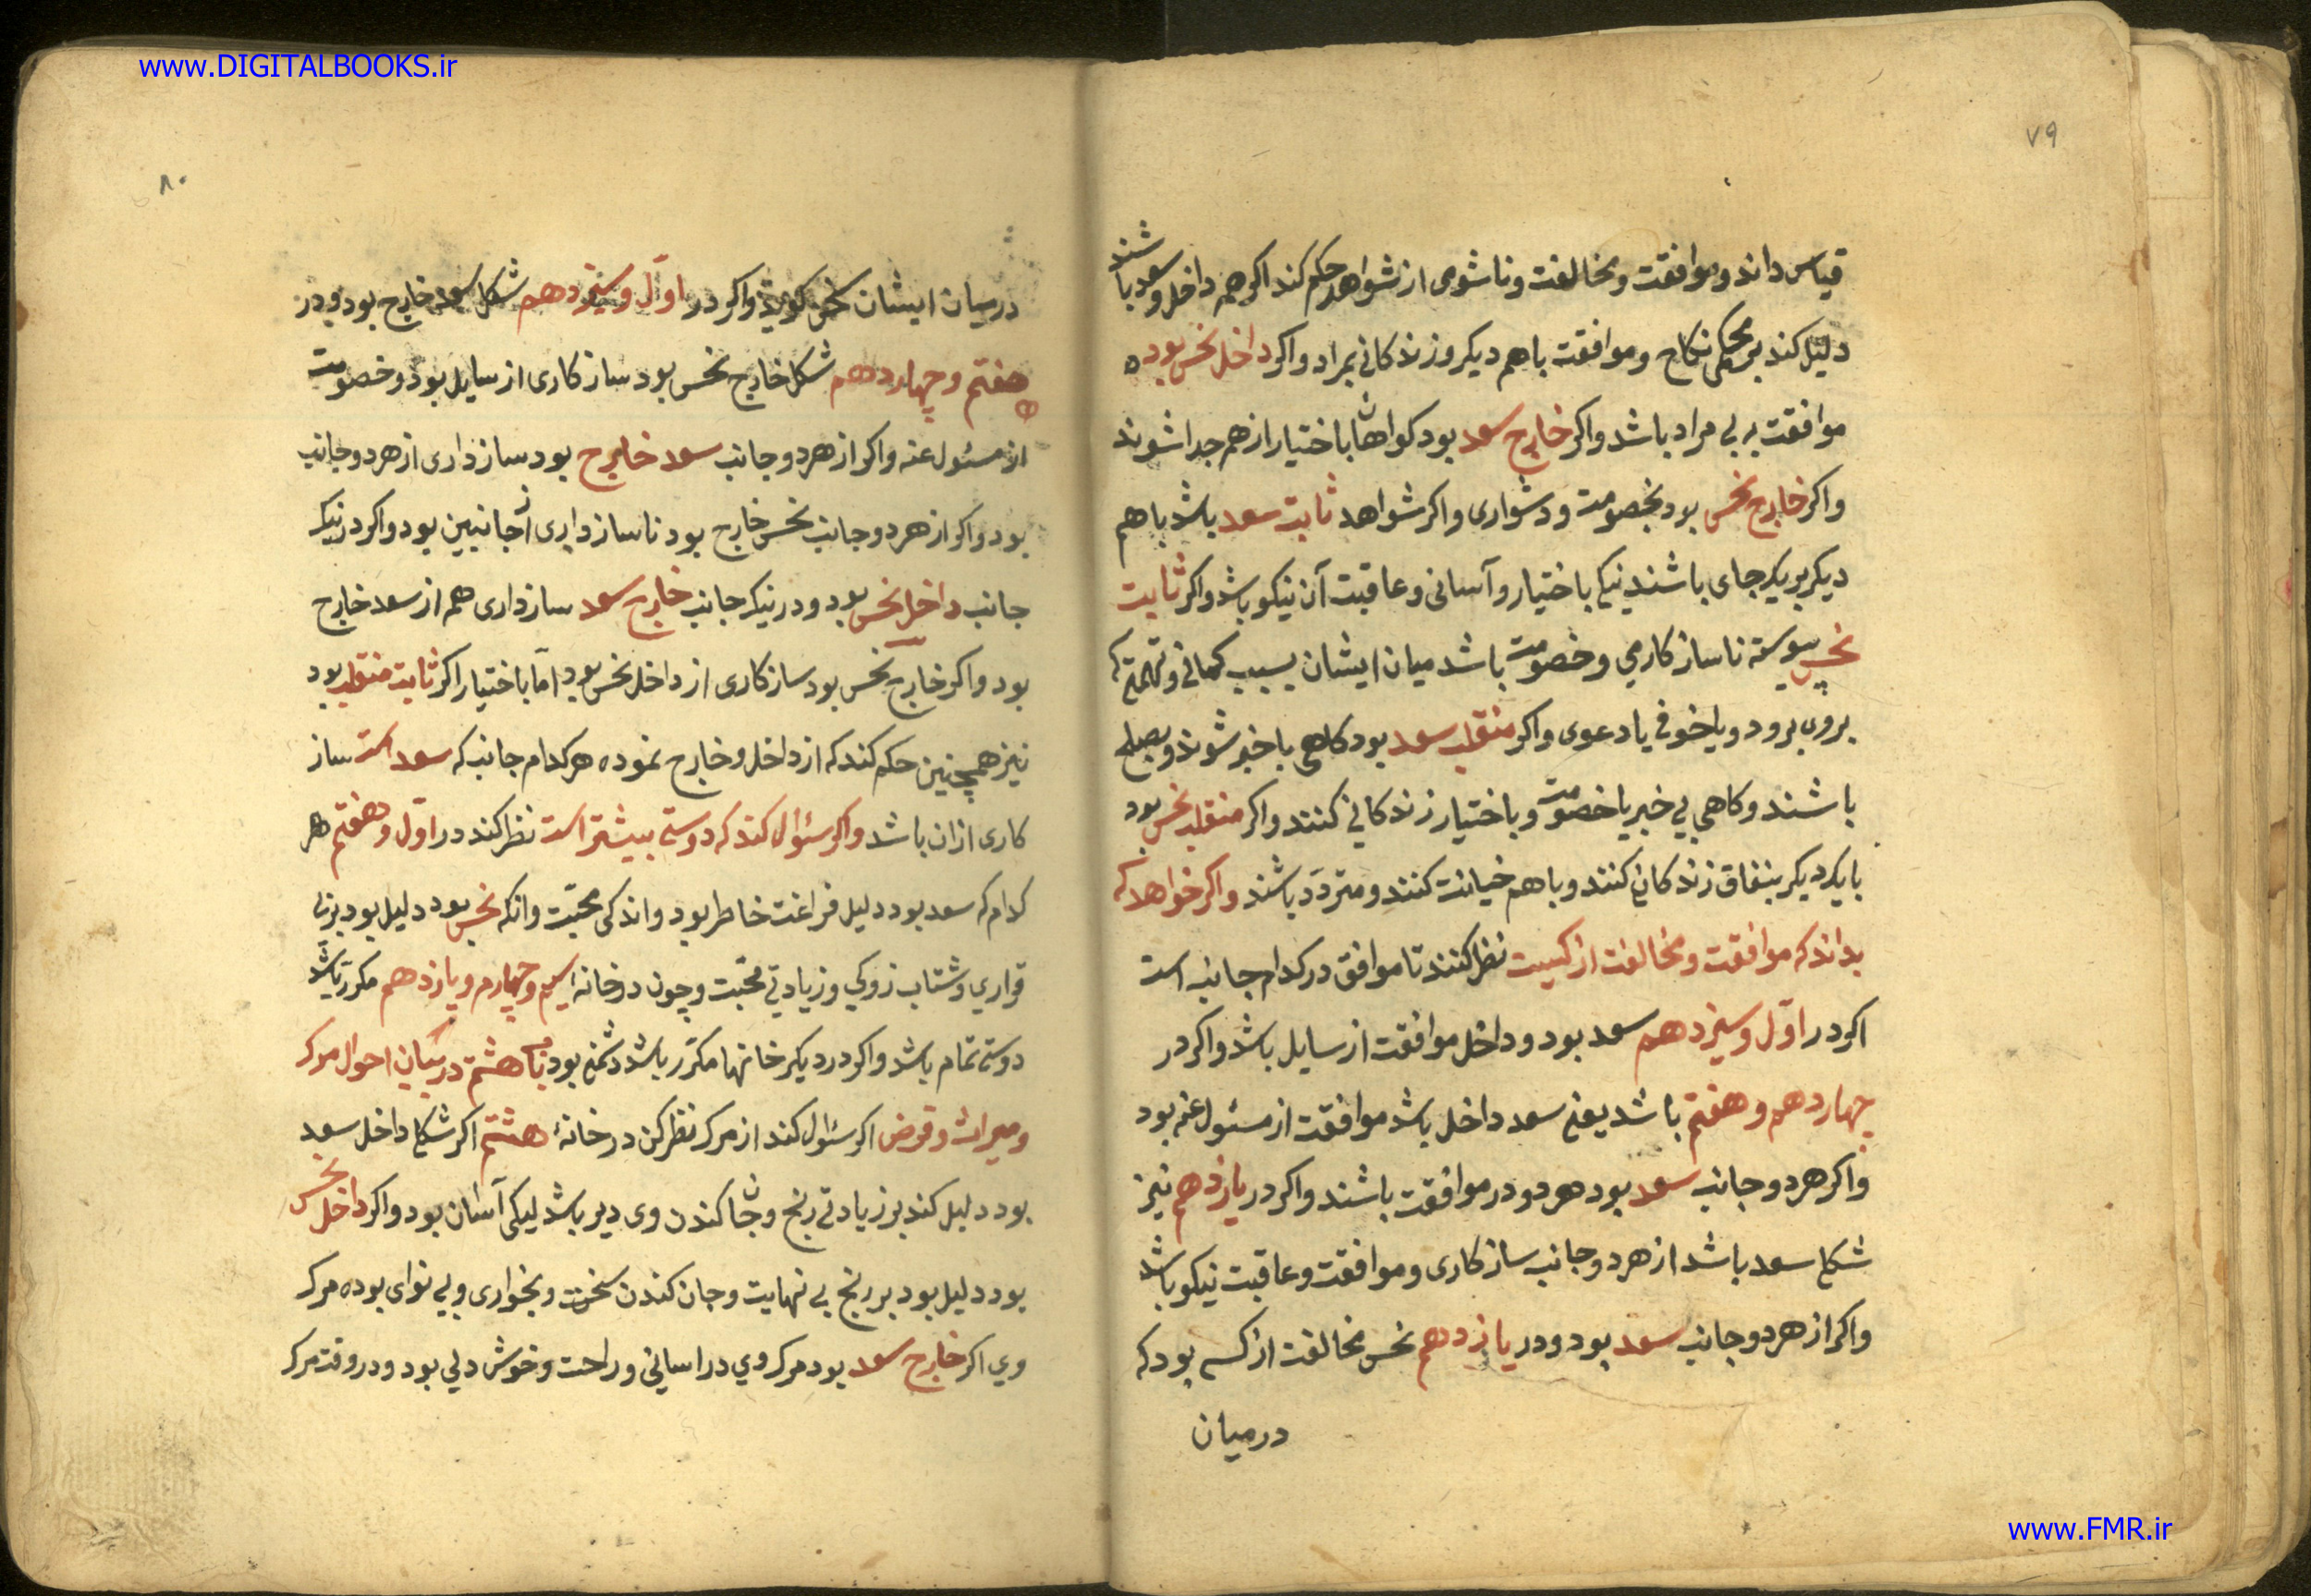 www.DIGITALBOOKS.ir
٧٩
قیاس داند و موافقت و مخالفت و ناشومی از شواهد حکم کند اکر همه داخل و سعد باشند
دلیل کند بر محکمی نکاح و موافقت باهم دیکر و زندکانی بمراد و اکر داخل نحس بود
موافقت به بی مراد باشد و اکر خارج سعد بود کواهان باختیار از هم جدا شوند
و اکر خارج نحس بود بخصومت و دشواری و اکر شواهد ثابت سعد باشد باهم
دیکر بریکجای باشند نیکی باختیار و آسانی و عاقبت آن نیکو باشد و اکر ثابت
نحس پیوسته ناسازکاری و خصومت باشد میان ایشان بسبب کمانی و تهمتی که
بروی برود و یا خوفی یا دعوی و اکر منقلب سعد بود کاهی باخبر شوند و بصلح
باشند و کاهی بی خبر با خصومت و باختیار زندکانی کنند و اکر منقلب نحس بود
با یکدیکر بنفاق زندکانی کنند و باهم خیانت کنند و متردد باشند و اکر خواهد که
بداند که موافقت و مخالفت از کیست نظر کنند تا موافق در کدام جانب است
اکر در اوّل و سیزدهم سعد بود و داخل موافقت از سایل باشد و اکر در
چهاردهم و هفتم باشد یعنی سعد داخل باشد موافقت از مسئول عنه بود
و اکر هر دو جانب سعد بود هر دو در موافقت باشند و اکر در یازدهم نیز
شکل سعد باشد از هر دو جانب سازکاری و موافقت و عاقبت نیکو باشد
و اکر از هر دو جانب سعد بود و در یازدهم نحس مخالفت از کسی بود که
درمیان
٨٠
درمیان ایشان سخن کوید و اکر در اوّل و سیزدهم شکل سعد خارج بود و در
هفتم و چهاردهم شکل خارج نحس بود سازکاری از سایل بود و خصومت
از مسئول عنه و اکر از هر دو جانب سعد خارج بود سازداری از هر دو جانب
بود و اکر از هر دو جانب نحس خارج بود ناسازداری از جانبین بود و اکر در یک
جانب داخل نحس بود و در یک جانب خارج سعد سازداری هم از سعد خارج
بود و اکر خارج نحس بود سازکاری از داخل نحس بود امّا باختیار اکر ثابت منقلب بود
نیز همچنین حکم کند که از داخل و خارج نموده هر کدام جانب که سعد است ساز
کاری ازان باشد و اکر سئوال کند که دوستی بیشتر است نظر کند در اوّل و هفتم هر
کدام که سعد بود دلیل فراغت خاطر بود و اندکی محبّت و انکه نحس بود دلیل بود بر بی
قراری و شتاب زدکی و زیادتی محبّت و چون در خانه سیم و چهارم و یازدهم مکرّر باشد
دوستی تمام باشد و اکر در دیکر خانها مکرّر باشد دشمنی بود باب هشتم در بیان احوال مرک
و میراث و قرض اکر سئوال کند از مرک نظر کن در خانهٔ هشتم اکر شکل داخل سعد
بود دلیل کند بر زیادتی رنج و جان کندن وی دیر باشد لیکن آسان بود و اکر داخل نحس
بود دلیل بود بر رنج بی نهایت و جان کندن سخت و بخواری و بی نوای بوده مرک
وی اکر خارج سعد بود مرک وی در اسانی و راحت و خوش دلی بود و در وقت مرک
www.FMR.ir